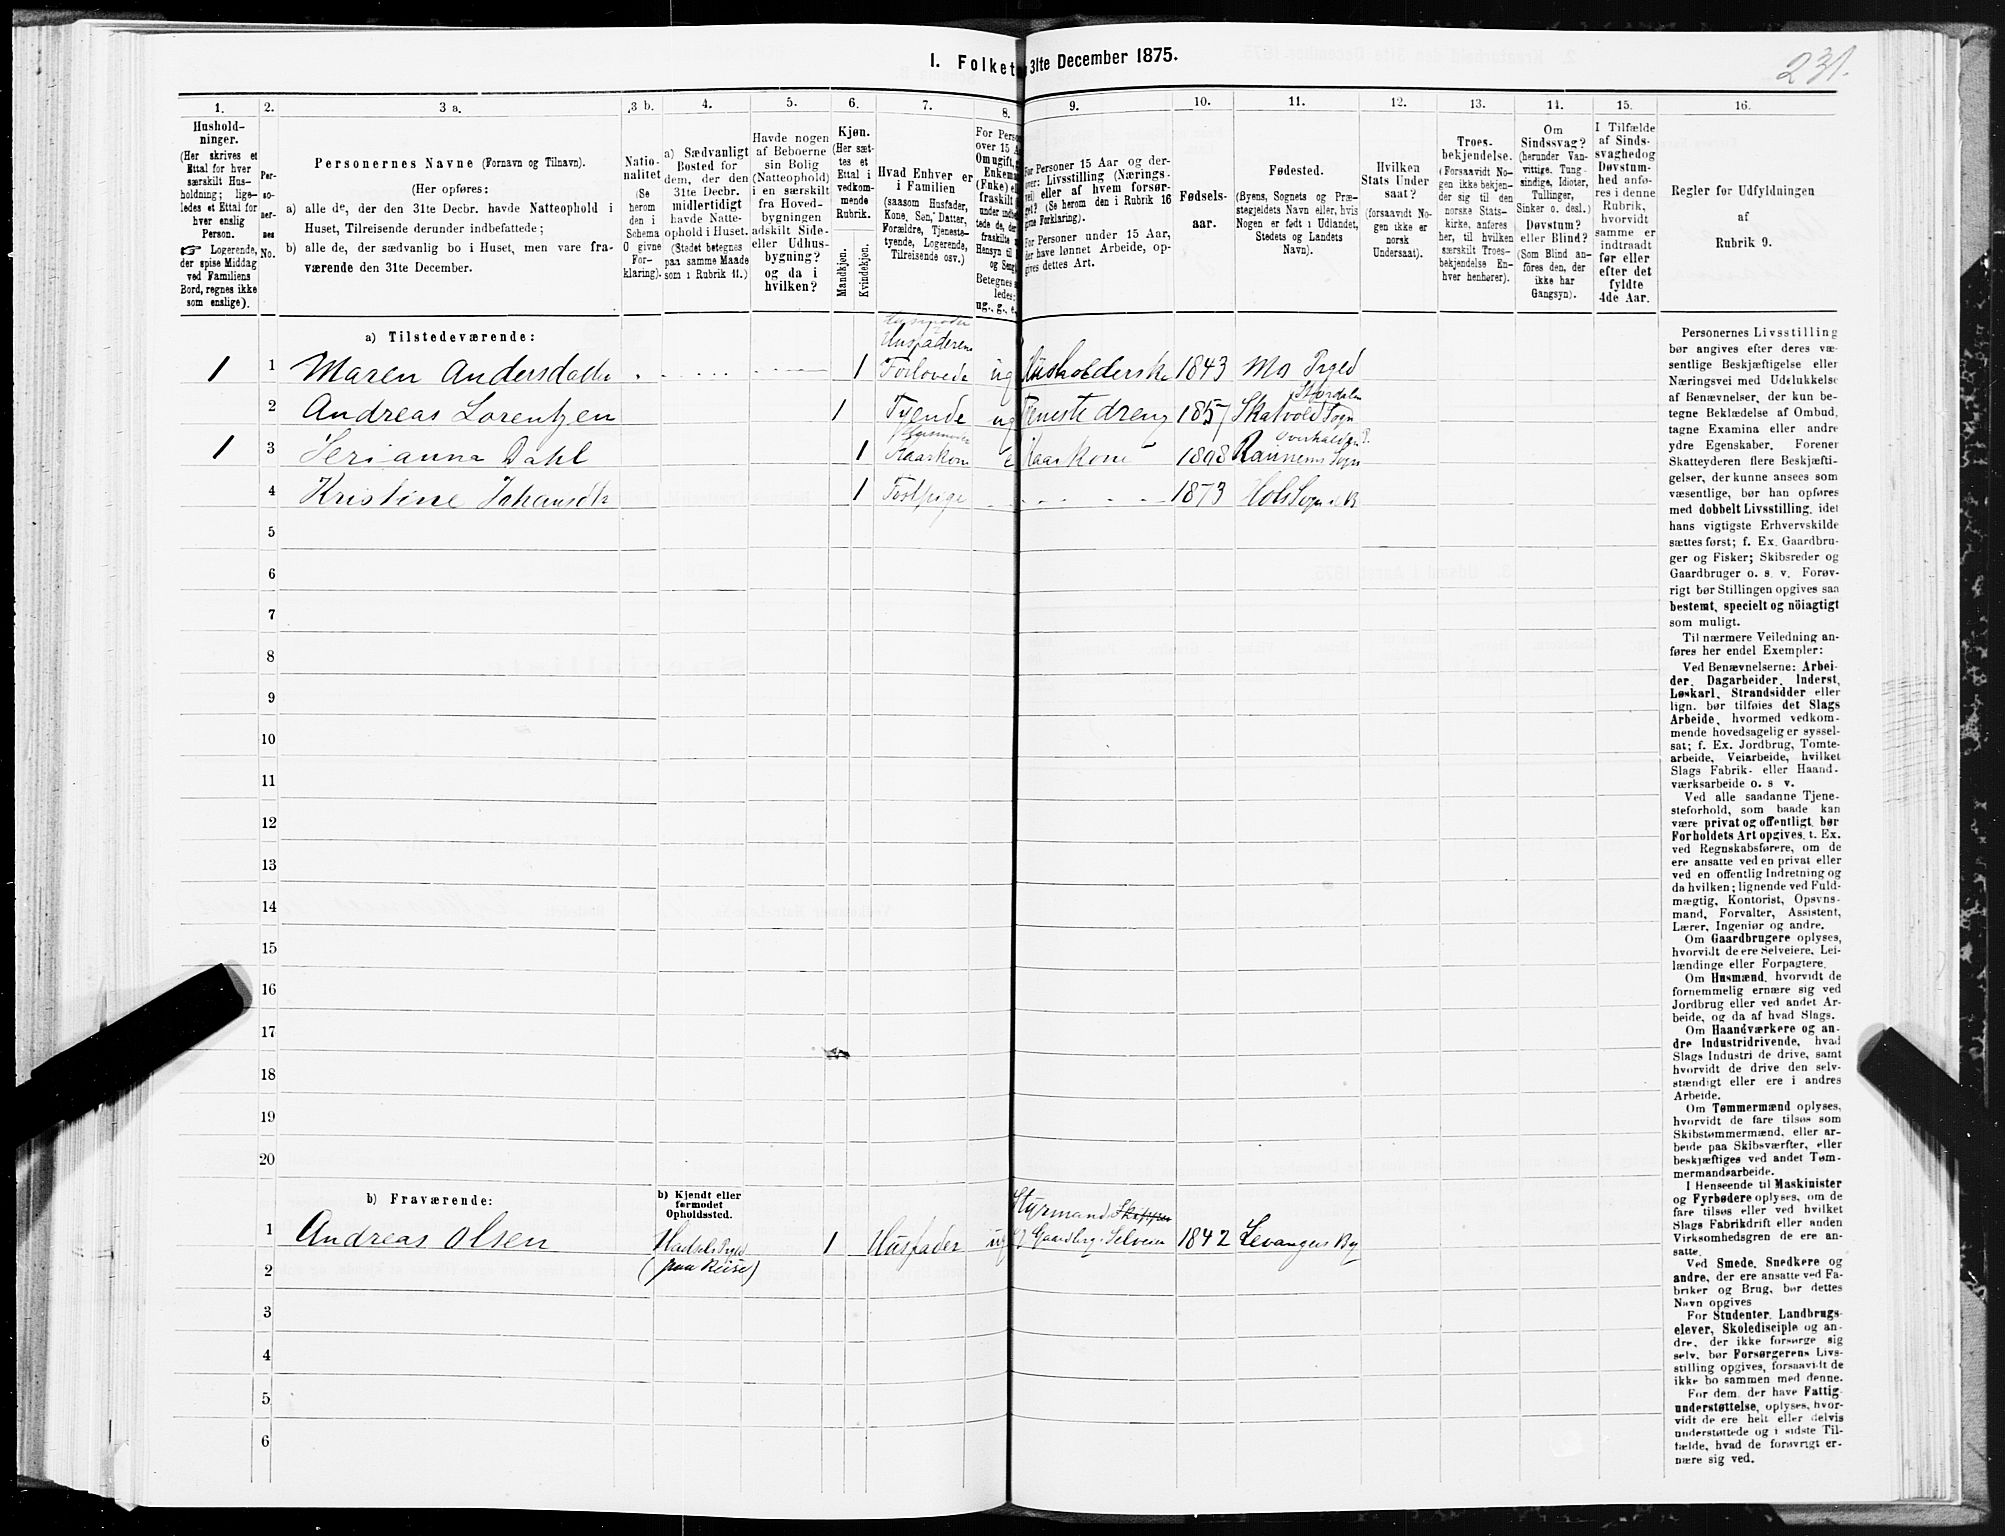 231.
I. Folket
31te December 1875.
1.
2.
3 a.
3 b.
4.
5.
6.
7.
8.
9.
10.
11.
12.
13.
14.
15.
16.
Hushold-
ninger.
(Her skrives et
Ettal for hver
særskilt Hus-
holdning; lige-
ledes et Ettal for
hver enslig
Person.
☞ Logerende,
der spise Middag
ved Familiens
Bord, regnes ikke
som enslige).
Per-
so-
ner-
nes
No.
Personernes Navne (Fornavn og Tilnavn).
(Her opføres:
a) alle de, der den 31te Decbr. havde Natteophold i
Huset, Tilreisende derunder indbefattede;
b) alle de, der sædvanlig bo i Huset, men vare fra-
værende den 31te December.
Natio-
nalitet
(Se
herom
den i
Schema
O givne
For-
klaring).
a) Sædvanligt
Bosted for
dem, der den
31te Decbr.
midlertidigt
havde Natte-
ophold i Huset.
(Stedet betegnes
paa samme Maade
som i Rubrik 11.)
Havde nogen
af Beboerne
sin Bolig
(Natteophold)
i en særskilt
fra Hoved-
bygningen
adskilt Side-
eller Udhus-
bygning?
og da i
hvilken?
Kjøn.
(Her sæt-
tes et
Ettal i
vedkom-
mende
Rubrik.
Mandkjøn.
Kvindekjøn.
Hvad Enhver er
i Familien
(saasom Husfader,
Kone, Søn, Datter,
Forældre, Tjeneste-
tyende, Logerende,
Tilreisende osv.)
For Perso
over 15 A
Om ugift,
Enkema
(Fnke) el
fraskilt
under indb
tede de, der
fraskilte
Hensyn til
og Seng
Betegnes
ledes:
ug., g., e.
For Personer 15 Aar og der-
over: Livsstilling (Nærings-
vei) eller af hvem forsør-
get? (Se herom den i Rubrik 16
givne Forklaring).
For Personer under 15 Aar,
der have lønnet Arbeide, op-
gives dettes Art.
Fødsels-
aar.
Fødested.
(Byens, Sognets og Præ-
stegjeldets Navn eller, hvis
Nogen er født i Udlandet,
Stedets og Landets
Navn).
Hvilken
Stats Under
saat?
(forsaavidt No-
gen ikke er
norsk
Undersaat).
Troes-
bekjendelse.
(Forsaavidt No-
gen ikke bekjen-
der sig til den
norske Stats-
kirke, anføres
her, til hvilken
særskilt Troes-
bekjendelse En-
hver henhører).
Om
Sindssvag?
(herunder Van-
vittige, Tung-
sindige, Idioter,
Tullinger,
Sinker o. desl.)
Døvstum?
eller Blind?
(Som Blind an-
føres den, der
ikke har
Gangsyn).
I Tilfælde
af Sinds-
svaghed og
Døvstum-
hed anfø-
res i denne
Rubrik,
hvorvidt
samme er
indtraadt
før eller
efter det
fyldte
4de Aar.
Regler for Udfyldningen
af
Rubrik 9.
a) Tilstedeværende:
Husmoder
Husfaderens
1 1 Maren Andersdatter 1 Forlovede ug Husholderske 1843 Mo Prgld
2 Andreas Lorentzen 1 Tyende ug Tjenestedreng 1857 Skatvold Sogn Stjørdalen
1 3 Serianna Dahl 1 Husmoder Kaarkone e Kaarkone 1808 Rannems Sogn Overhalden P.
4 Kristine Johansdtr 1 1873 Hols Sogn
5
6
7
8
9
10
11
12
13
14
15
16
17
18
19
20
b) Fraværende:
b) Kjendt eller
formodet
Opholdssted.
Styrmand Skipper
1 Andreas Olsen Hadsels Prgld 1 Husfader ug Gaardbr. Selveier 1842 Levangers By
2 (paa Reise)
3
4
5
6
Personernes Livsstilling
bør angives efter deres væ-
sentlige Beskjæftigelse eller
Næringsvei med Udelukkelse
af Benævnelser, der kun be-
tegne Beklædelse af Ombud,
tagne Examina eller andre
ydre Egenskaber. Forener
Skatteyderen flere Beskjæfti-
gelser, der kunne ansees som
væsentlige, bør han opføres
med dobbelt Livsstilling, idet
hans vigtigste Erhvervskilde
sættes først; f. Ex. Gaardbru-
ger og Fisker; Skibsreder og
Gaardbruger o. s. v. Forøv-
rigt bør Stillingen opgives saa
bestemt, specielt og nöiagtigt
som muligt.
Til nærmere Veiledning an-
føres her endel Exempler:
Ved Benævnelserne: Arbei-
der, Dagarbeider, Inderst,
Løskarl, Strandsidder eller
lign. bør tilføies det Slags
Arbeide, hvormed vedkom-
mende hovedsagelig er syssel-
sat; f. Ex. Jordbrug, Tomte-
arbeide, Veiarbeide, hvilket
Slags Fabrik- eller Haand-
værksarbeide o. s v.
Ved alle saadanne Tjene-
steforhold, som baade kan
være privat og offentligt, bør
Forholdets Art opgives, t. Ex.
ved Regnskabsførere, om de
ere ansatte ved en privat eller
ved en offentlig Indretning og
da hvilken; lignende ved Fuld-
mægtig, Kontorist, Opsyns-
mand, Forvalter, Assistent,
Lærer, Ingeniør og andre.
Om Gaardbrugere oplyses,
hvorvidt de ere Selveiere, Lei-
lændinge eller Forpagtere.
Om Husmænd, hvorvidt de
fornemmelig ernære sig ved
Jordbrug eller ved andet Ar-
beide, og da af hvad Slags.
Om Haandværkere og an-
dre Industridrivende, hvad
Slags Industri de drive, samt
hvorvidt de drive den selv-
stændigt eller ere i andres
Arbeide.
Om Tømmermænd oplyses,
hvorvidt de fare tilsøs som
Skibstømmermænd, eller ar-
beide paa Skibsværfter, eller
beskjæftiges ved andet Tøm-
mermandsarbeide.
I Henseende til Maskinister
og Fyrbødere oplyses, om de
fare tilsøs eller ved hvilket
Slags Fabrikdrift eller anden
Virksomhedsgren de ere an-
satte.
Ved Smede, Snedkere og
andre, der ere ansatte ved Fa-
briker og Brug, bør dettes
Navn opgives
For Studenter, Landbrugs-
elever, Skoledisciple og an-
dre, der ikke forsørge sig
selv, bør Forsørgerens Livs-
stilling opgives, forsaavidt de
ikke bo sammen med denne.
For dem, der have Fattig
understøttelse, oplyses, hvor-
vidt de ere helt eller delvis
understøttede og i sidste Til-
fælde, hvad de forøvrigt er-
nære sig ved.